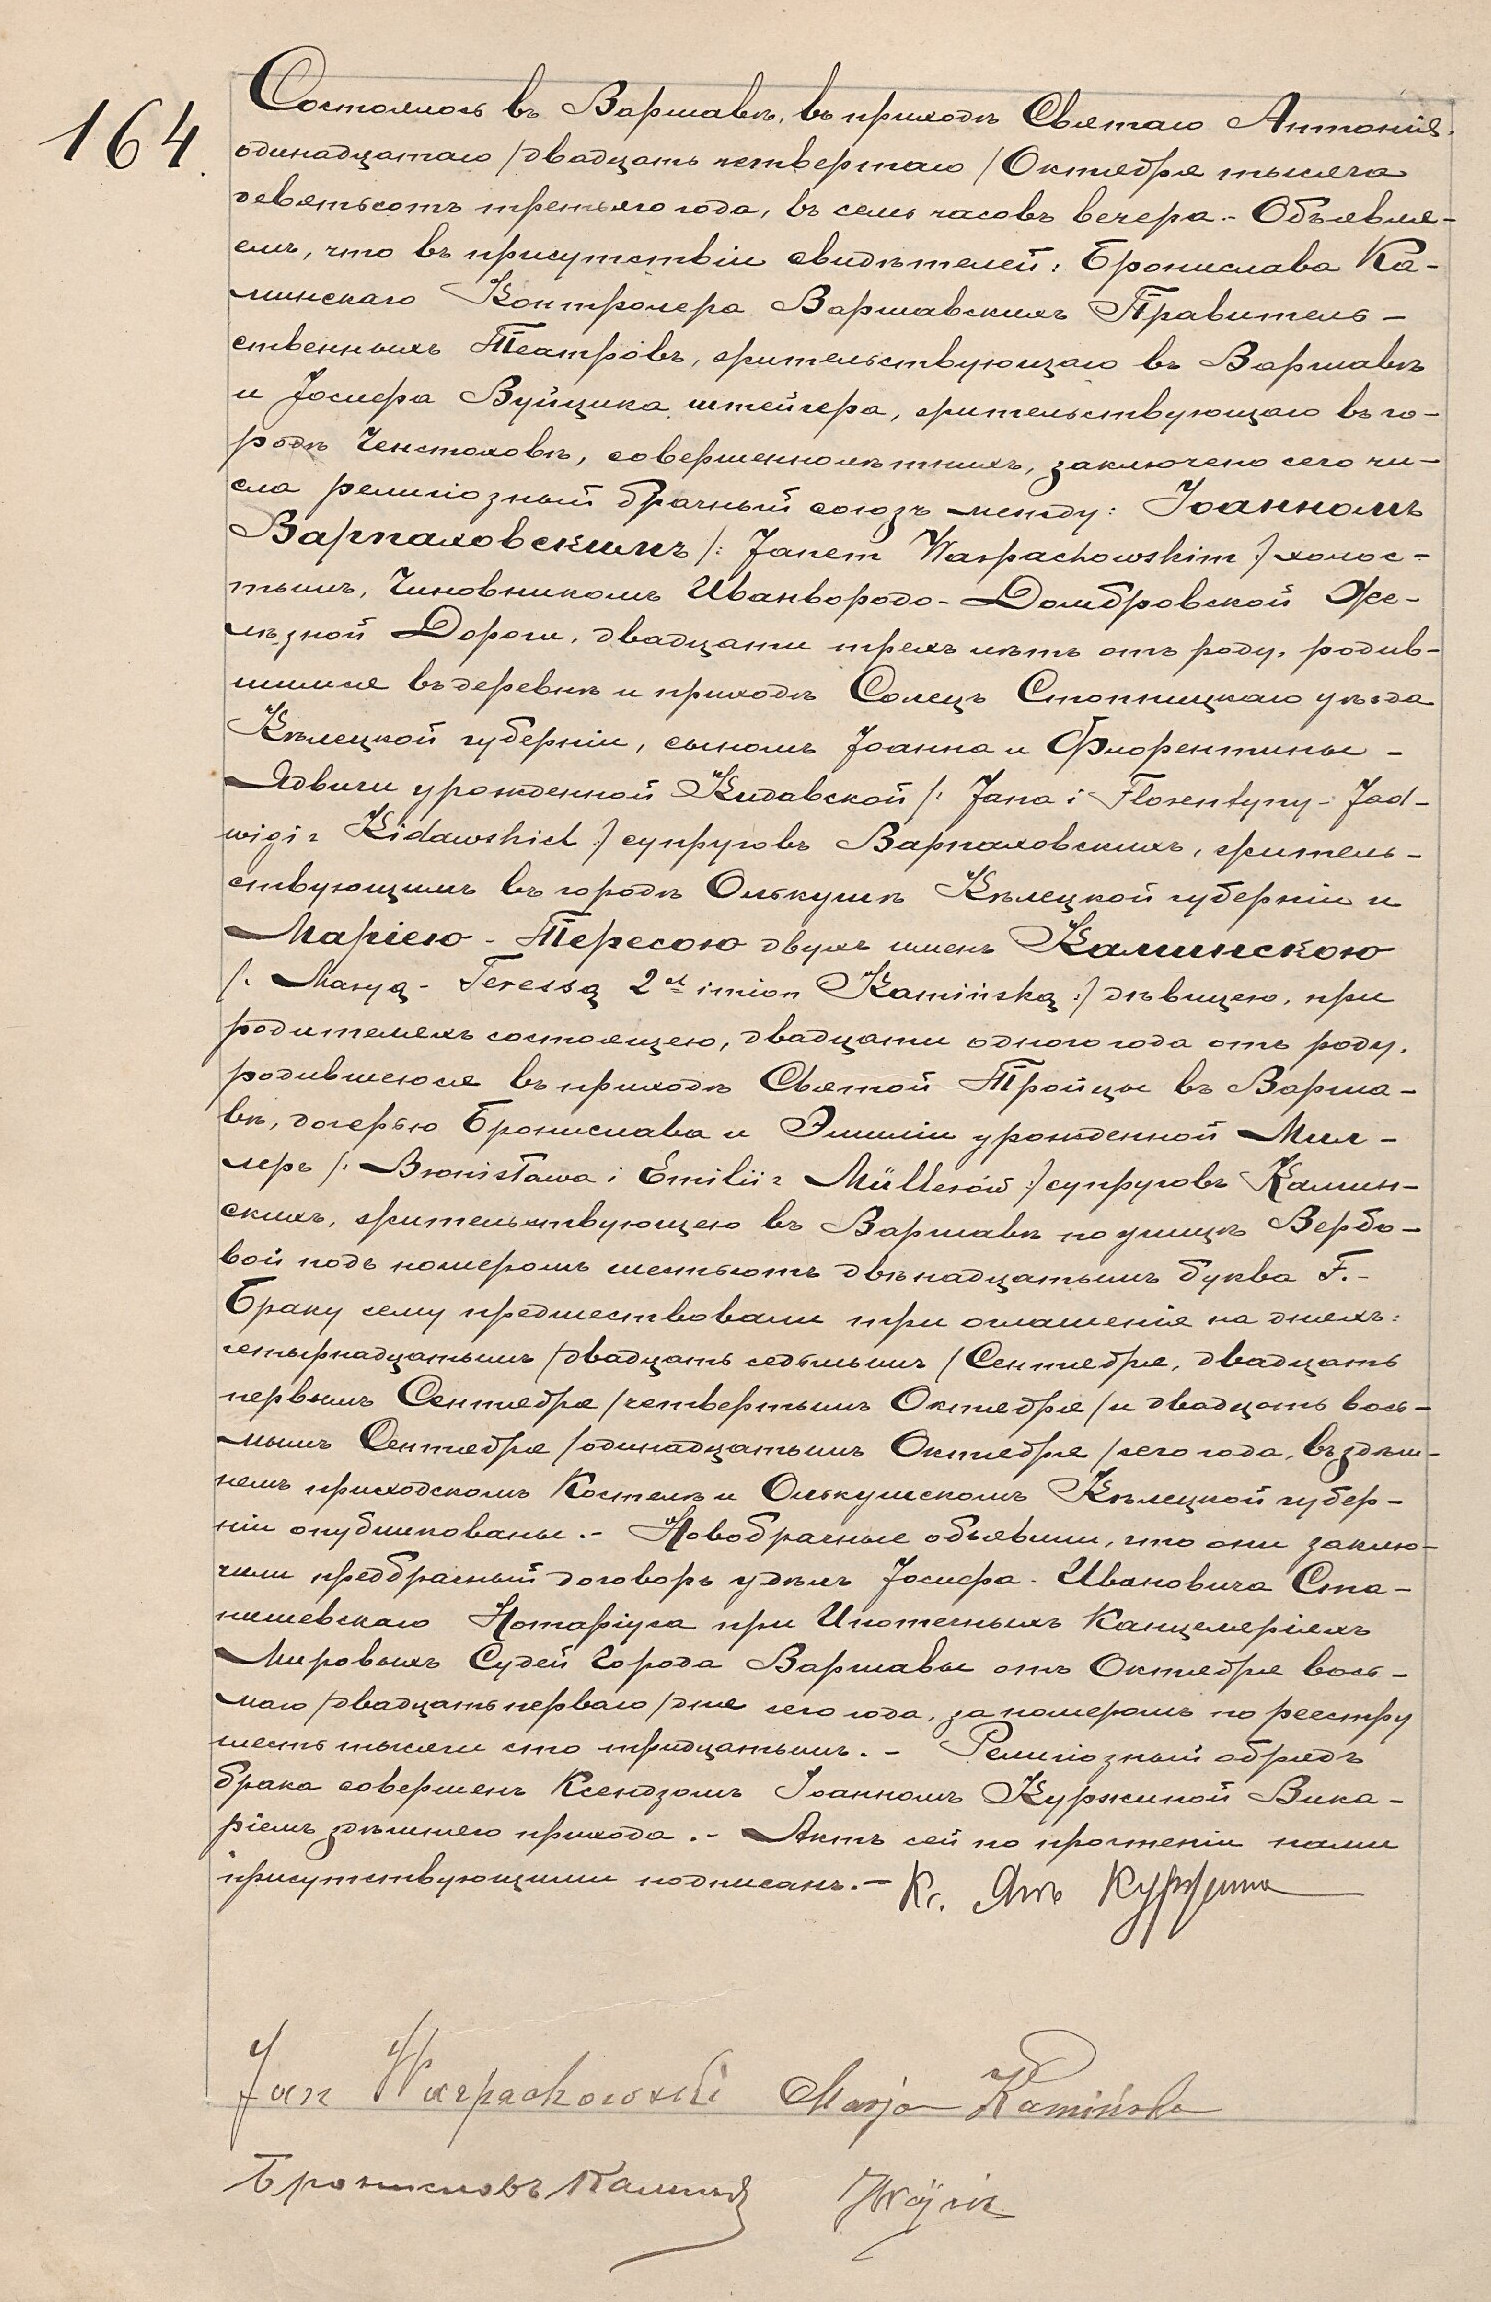 164.
Состоялось въ Варшавѣ, въ приходѣ Святаго Антонія,
одинадцатаго /двадцать четвертаго/ Октября тысяча
девятьсотъ третьяго года, въ семь часовъ вечера.- Объявля-
емъ, что въ присутствіи свидѣтелей: Бронислава Ка-
минскаго Контролера Варшавскихъ Правитель-
ственныхъ Театровъ, жительствующаго въ Варшавѣ
и Іосифа Вуйцика штейгера, жительствующаго въ го-
родѣ Ченстоховѣ, совершеннолѣтнихъ, заключено сего чи-
сла религіозный брачный союзъ между: Іоанномъ
Варпаховскимъ /: Janem Warpachowskim :/ холос-
тымъ, Чиновникомъ Иванвородо-Домбровской Же-
лѣзной Дороги, двадцати трехъ лѣтъ отъ роду, родив-
шимся въ деревнѣ и приходѣ Солецъ Стопницкаго уѣзда
Кѣлецкой губерніи, сыномъ Іоанна и Флорентины -
Ядвиги урожденной Кидавской /: Jana i Florentyny - Jad-
wigi z Kidawskich :/ супруговъ Варпаховскихъ, житель-
ствующимъ въ городѣ Олькушѣ Кѣлецкой губерніи и
Маріею - Тересою двухъ именъ Каминскою
/: Maryą - Teressą 2ch imion Kamińską :/ дѣвицею, при
родителяхъ состоящею, двадцати одного года отъ роду,
родившеюся въ приходѣ Святой Тройцы въ Варша-
вѣ, дочерью Бронислава и Эмиліи урожденной Мил-
леръ /: Bronisława i Emilii z Müllerów :/ супруговъ Камин-
скихъ, жительствующею въ Варшавѣ по улицѣ Вербо-
вой подъ номеромъ шестьсотъ двѣнадцатымъ буква F.-
Браку сему предшествовали три оглашенія на дняхъ:
четырнадцатымъ /двадцать седьмымъ/ Сентября, двадцать
первымъ Сентября /четвертымъ Октября/ и двадцать вось-
мымъ Сентября /одинадцатымъ Октября/ сего года, въ здѣш-
немъ приходскомъ Костелѣ и Олькушскомъ Кѣлецкой губер-
ніи опубликованы.- Новобрачные объявили, что они заклю-
чили предбрачный договоръ у дѣлъ Іосифа - Ивановича Ста-
нишевскаго Нотаріуса при Ипотечныхъ Канцеляріяхъ
Мировыхъ Судей Города Варшавы отъ Октября вось-
маго /двадцать перваго/ дня сего года, за номеромъ по реестру
шесть тысячи сто тридцатымъ.- Религіозный обрядъ
брака совершенъ Ксендзомъ Іоанномъ Куржиной Вика-
ріемъ здѣшняго прихода.- Актъ сей по прочтеніи нами
присутствующими подписанъ.- Кс. Янъ Куржина
Jan Warpachowski Marja Kamińska
Брониславъ Камински JWójcik